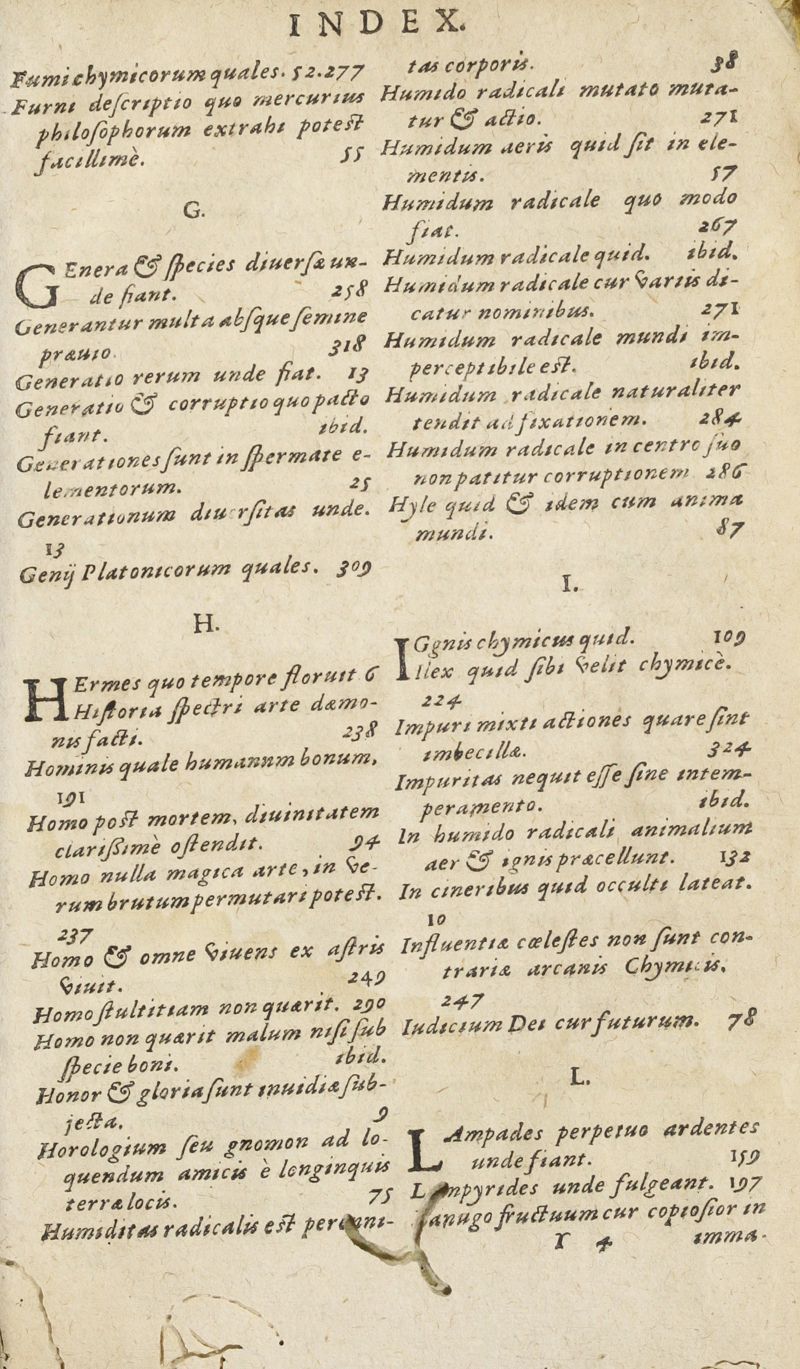 INDEX.
Fumi chymicorum quales. 52.277
Furni deſcriptio quo mercurius
philoſophorum extrahi poteſt
facillimè. 55
G.
GEnera & ſpecies diuerſæ un-
de fiant. 258
Generantur multa abſque ſemine
præuio. 318
Generatio rerum unde fiat. 13
Generatio & corruptio quo pacto
fiant. ibid.
Generationes ſunt in ſpermate e-
lementorum. 25
Generationum diuerſitas unde.
13
Genij Platonicorum quales. 309
H.
HErmes quo tempore floruit 6
Hiſtoria ſpectri arte dæmo-
nis facti. 238
Hominis quale humannm bonum,
191
Homo poſt mortem, diuinitatem
clariſſimè oſtendit. 94
Homo nulla magica arte, in ve-
rum brutum permutari poteſt.
237
Homo & omne viuens ex aſtris
viuit. 249
Homo ſtultitiam non quærit. 290
Homo non quærit malum niſi ſub
ſpecie boni. ibid.
Honor & gloria ſunt inuidiæ ſub-
jecta. 9
Horologium ſeu gnomon ad lo-
quendum amicis è longinquis
terræ locis. 75
Humiditas radicalis eſt perenni-
tas corporis. 38
Humido radicali mutato muta-
tur & actio. 271
Humidum aeris quid ſit in ele-
mentis. 57
Humidum radicale quo modo
fiat. 267
Humidum radicale quid. ibid.
Humidum radicale cur variis di-
catur nominibus. 271
Humidum radicale mundi im-
perceptibile eſt. ibid.
Humidum radicale naturaliter
tendit ad fixationem. 284
Humidum radicale in centro ſuo
non patitur corruptionem 286
Hyle quid & idem cum anima
mundi. 87
I.
IGgnis chymicus quid. 109
Ilex quid ſibi velit chymicè.
224
Impuri mixti actiones quare ſint
imbecillæ. 324
Impuritas nequit eſſe ſine intem-
peramento. ibid.
In humido radicali animalium
aer & ignis præcellunt. 132
In cineribus quid occulti lateat.
10
Influentiæ cœleſtes non ſunt con-
trariæ arcanis Chymicis.
247
Iudicium Dei cur futurum. 78
L.
LAmpades perpetuo ardentes
unde fiant. 159
Lampyrides unde fulgeant. 197
Lanugo fructuum cur copioſior in
T 4 imma-